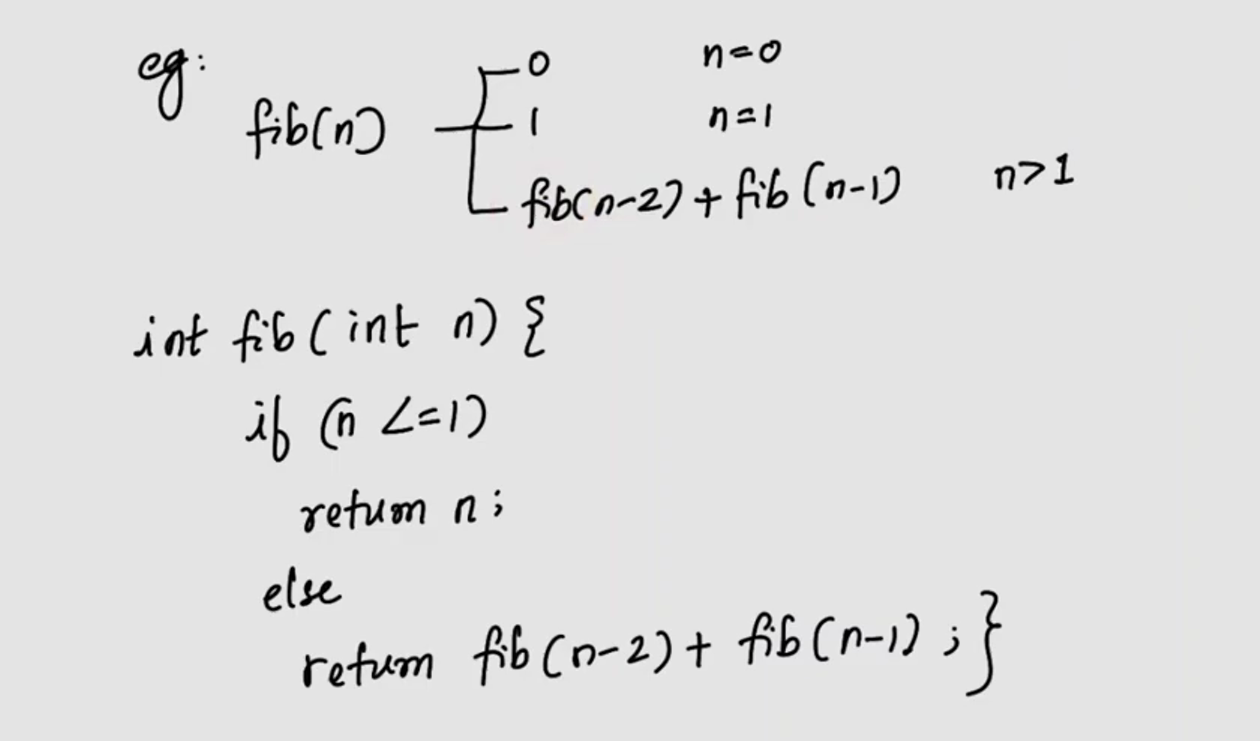 eg:
0 n=0
fib(n) 1 n=1
fib(n-2) + fib(n-1) n>1
int fib(int n) {
if (n <=1)
return n;
else
return fib(n-2) + fib(n-1) ; }